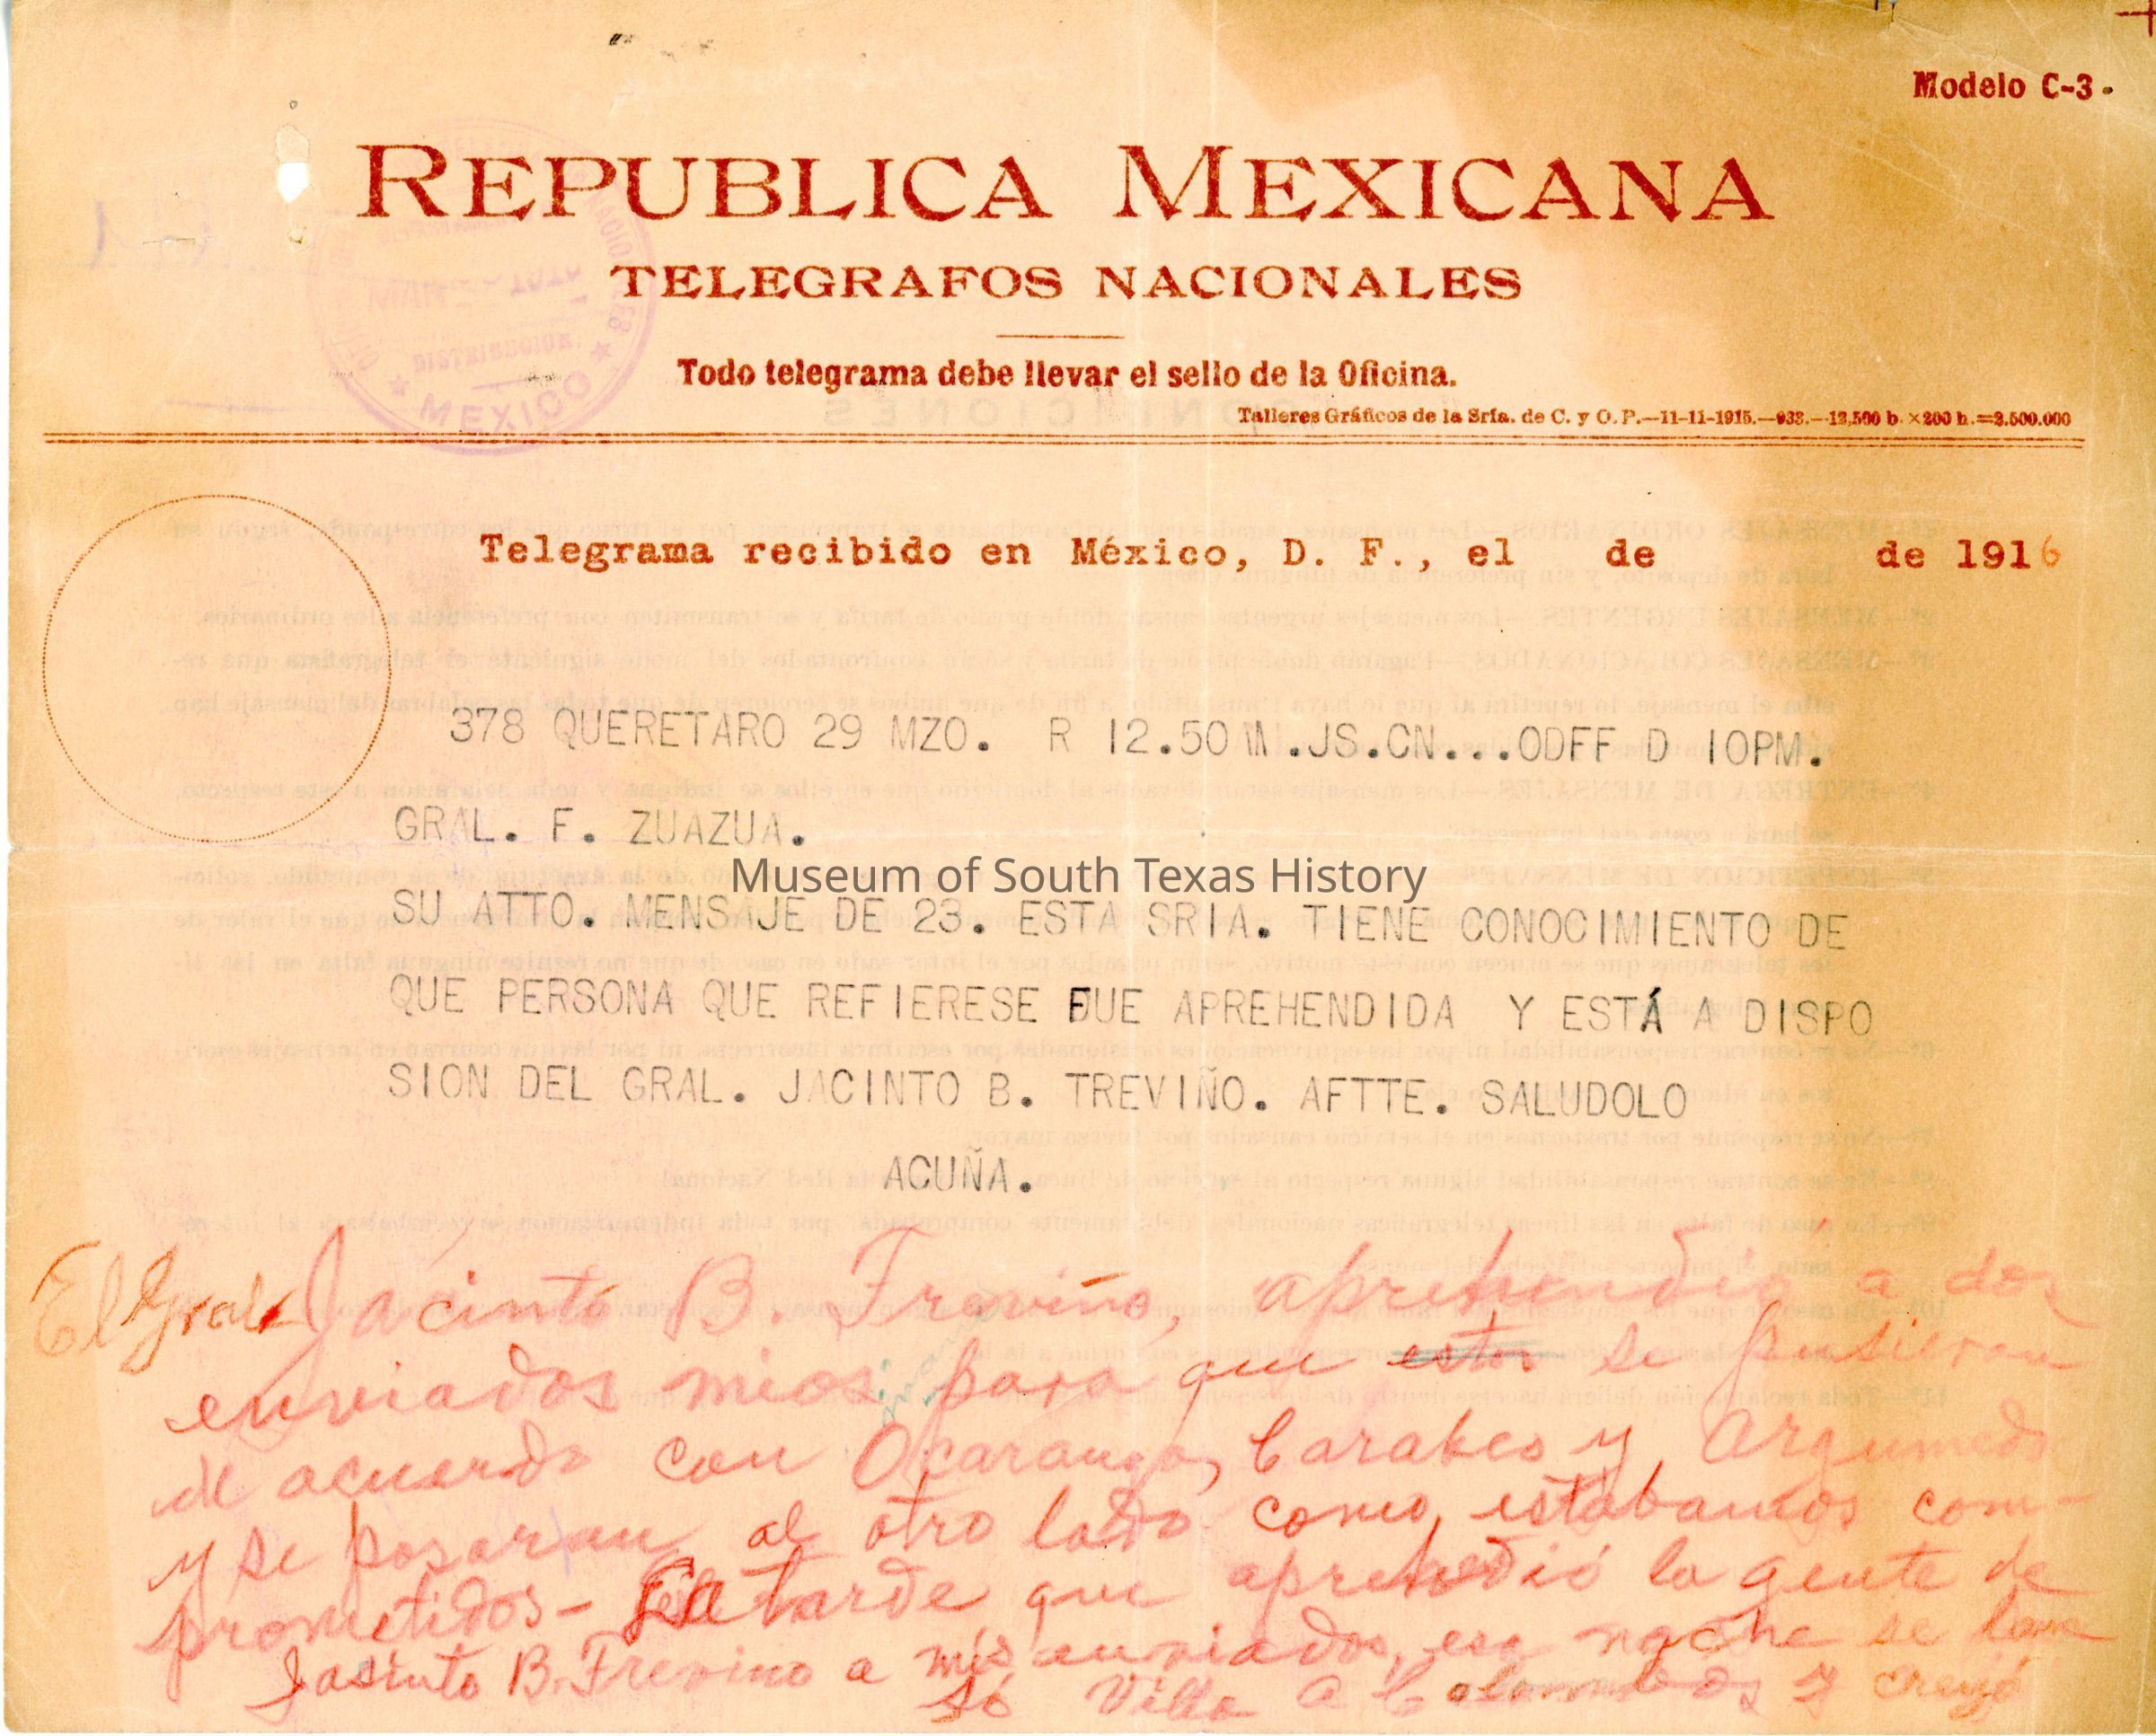 Modelo C-3.
REPUBLICA MEXICANA
TELEGRAFOS NACIONALES
Todo telegrama debe llevar el sello de la Oficina.
Talleres Gráficos de la Sría. de C. y O. P.—11-11-1915.—933.—12,500 b. ×200 h.=2.500.000
DISTRIBUCION.
MEXICO
Telegrama recibido en México, D. F., el de de 1916
378 QUERETARO 29 MZO. R 12.50 M.JS.CN...ODFF D 10PM.
GRAL. F. ZUAZUA.
Museum of South Texas History
SU ATTO. MENSAJE DE 23. ESTA SRIA. TIENE CONOCIMIENTO DE
QUE PERSONA QUE REFIERESE FUE APREHENDIDA Y ESTÁ A DISPO
SION DEL GRAL. JACINTO B. TREVIÑO. AFTTE. SALUDOLO
ACUÑA.
El Gral. Jacinto B. Treviño, aprehendio a dos
enviados mios para que estos se pusieran
de acuerdo con Ocaranza, Caraveo y Argumedo
y se pasaran al otro lado como estabamos com-
prometidos - La tarde que aprehendió la gente de
Jasinto B. Trevino a mis enviados, esa noche se lan
só Villa a y creyó